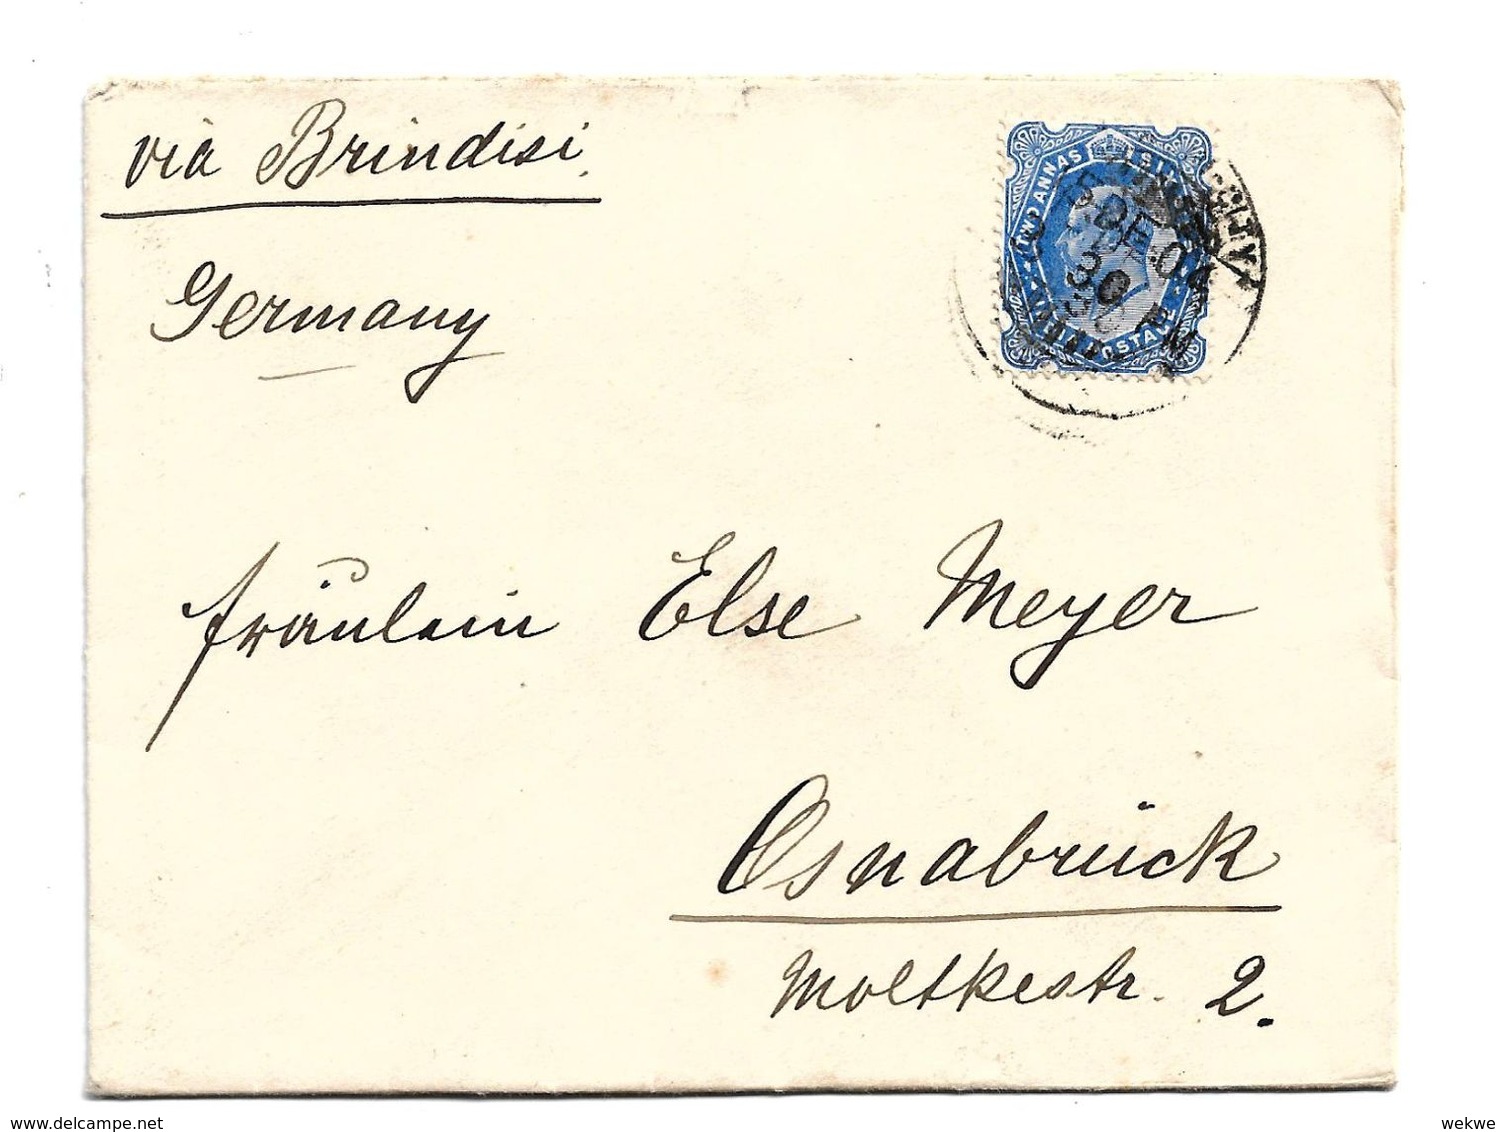 via Brindisi.
Germany
TWO ANNAS SIX
DE 04
30
PM
Fräulein Else Meyer
Osnabrück
Moltkestr. 2.
www.delcampe.net
wekwe